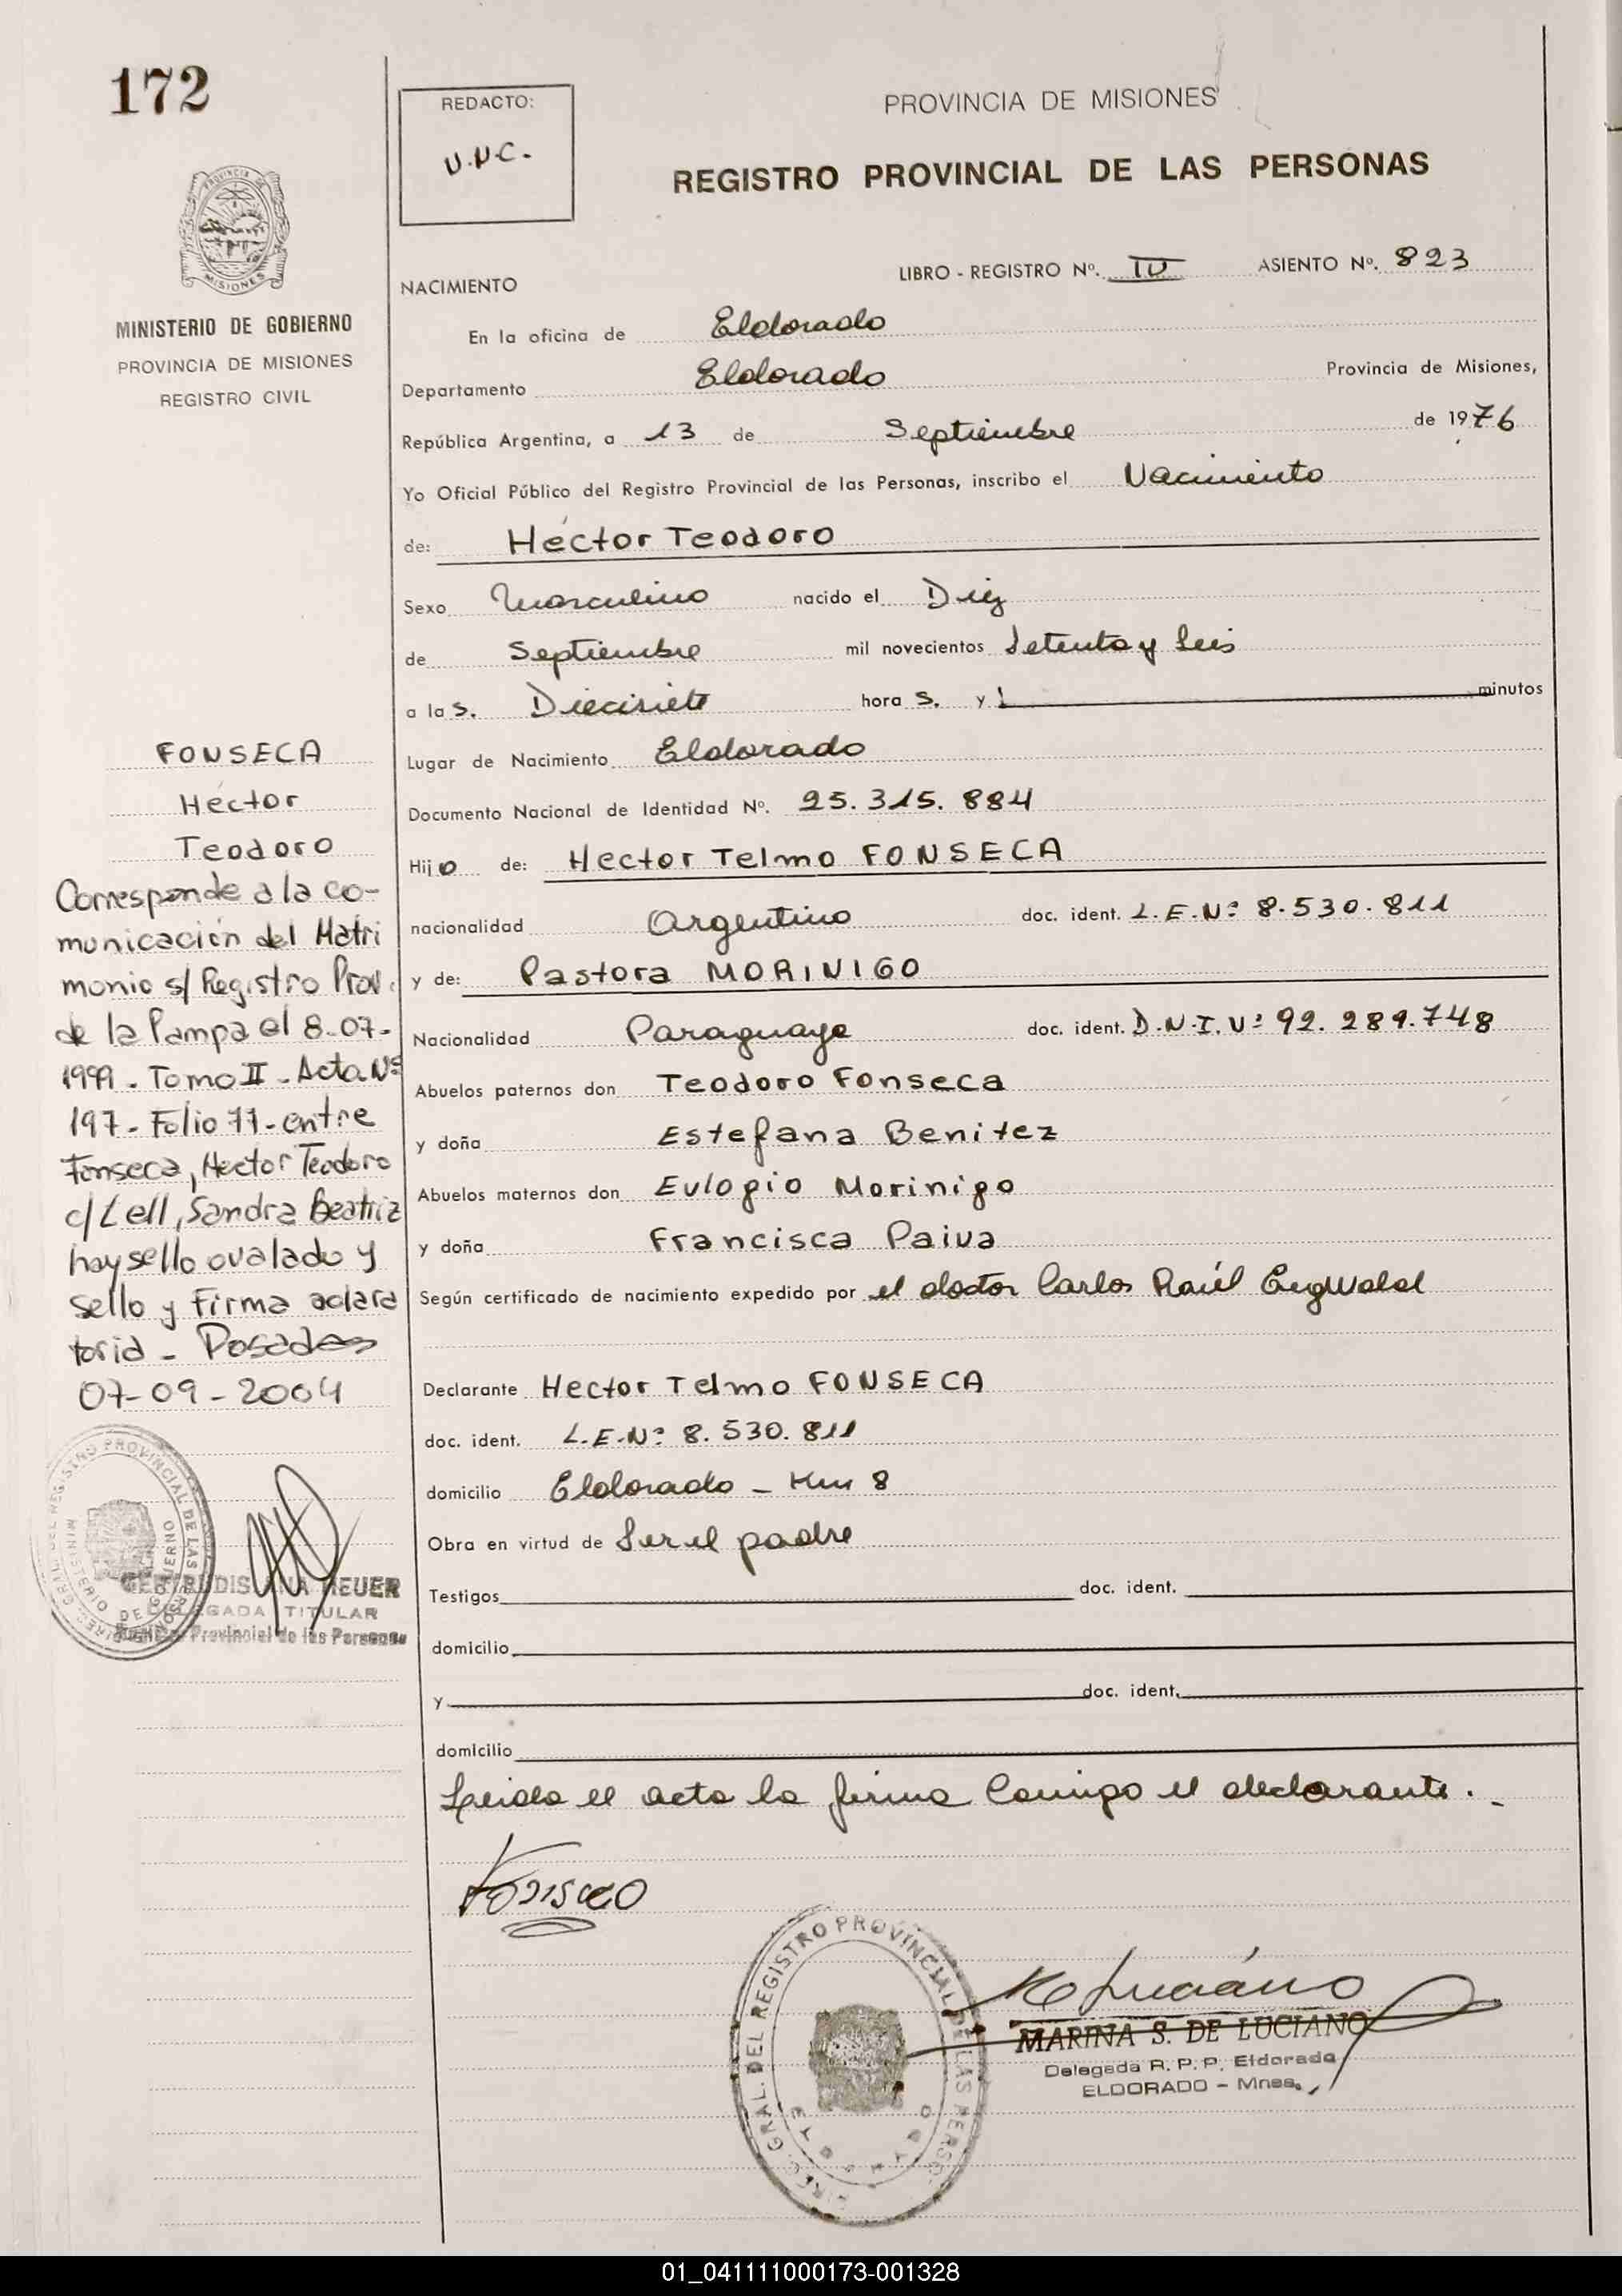 172
REDACTO:
U.N.C.-
PROVINCIA DE MISIONES
REGISTRO PROVINCIAL DE LAS PERSONAS
MINISTERIO DE GOBIERNO
PROVINCIA DE MISIONES
REGISTRO CIVIL
NACIMIENTO
LIBRO - REGISTRO Nº. IV ASIENTO Nº. 823
En la oficina de Eldorado
Departamento Eldorado Provincia de Misiones,
República Argentina, a 13 de Septiembre de 1976
Yo Oficial Público del Registro Provincial de las Personas, inscribo el Nacimiento
de: Héctor Teodoro
Sexo Masculino nacido el Diez
de Septiembre mil novecientos Setenta y Seis
a las. Diecisiete hora s. y minutos
Lugar de Nacimiento Eldorado
Documento Nacional de Identidad Nº. 25.315.884
Hijo de: Hector Telmo FONSECA
nacionalidad Argentino doc. ident. L.E.Nº 8.530.811
y de: Pastora MORINIGO
Nacionalidad Paraguaya doc. ident. D.N.I. Nº 92.289.748
Abuelos paternos don Teodoro Fonseca
y doña Estefana Benitez
Abuelos maternos don Eulogio Morinigo
y doña Francisca Paiva
Según certificado de nacimiento expedido por el doctor Carlos Raúl
Declarante Hector Telmo FONSECA
doc. ident. L.E.Nº 8.530.811
domicilio Eldorado - Km 8
Obra en virtud de Ser el padre
Testigos doc. ident.
domicilio
y doc. ident.
domicilio
Leida el acta la firma Conmigo el declarante.-
Fonseca
FONSECA
Héctor
Teodoro
Corresponde a la co-
municación del Matri
monio s/ Registro Prov.
de la Pampa el 8-07-
1999 - Tomo II - Acta Nº
197 - Folio 77 - entre
Fonseca, Hector Teodoro
c/ Lell, Sandra Beatriz
hay sello ovalado y
sello y Firma aclara
toria - Posadas
07-09-2004
GERTRUDIS ANA HEUER
DELEGADA TITULAR
Provincial de las Personas
DIREC. GRAL. DEL REGISTRO PROVINCIAL DE LAS PERSONAS
MINISTERIO DE GOBIERNO
DIREC. GRAL. DEL REGISTRO PROVINCIAL DE LAS PERSO
MARINA S. DE LUCIANO
Delegada R. P. P. Eldorado
ELDORADO - Mnes.
01_041111000173-001328